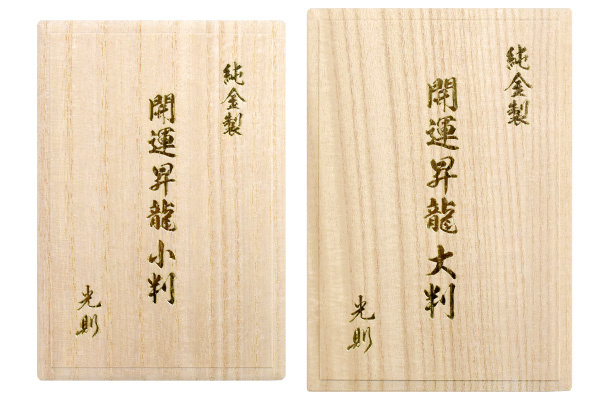 純金製
開運昇龍小判
光則
純金製
開運昇龍大判
光則